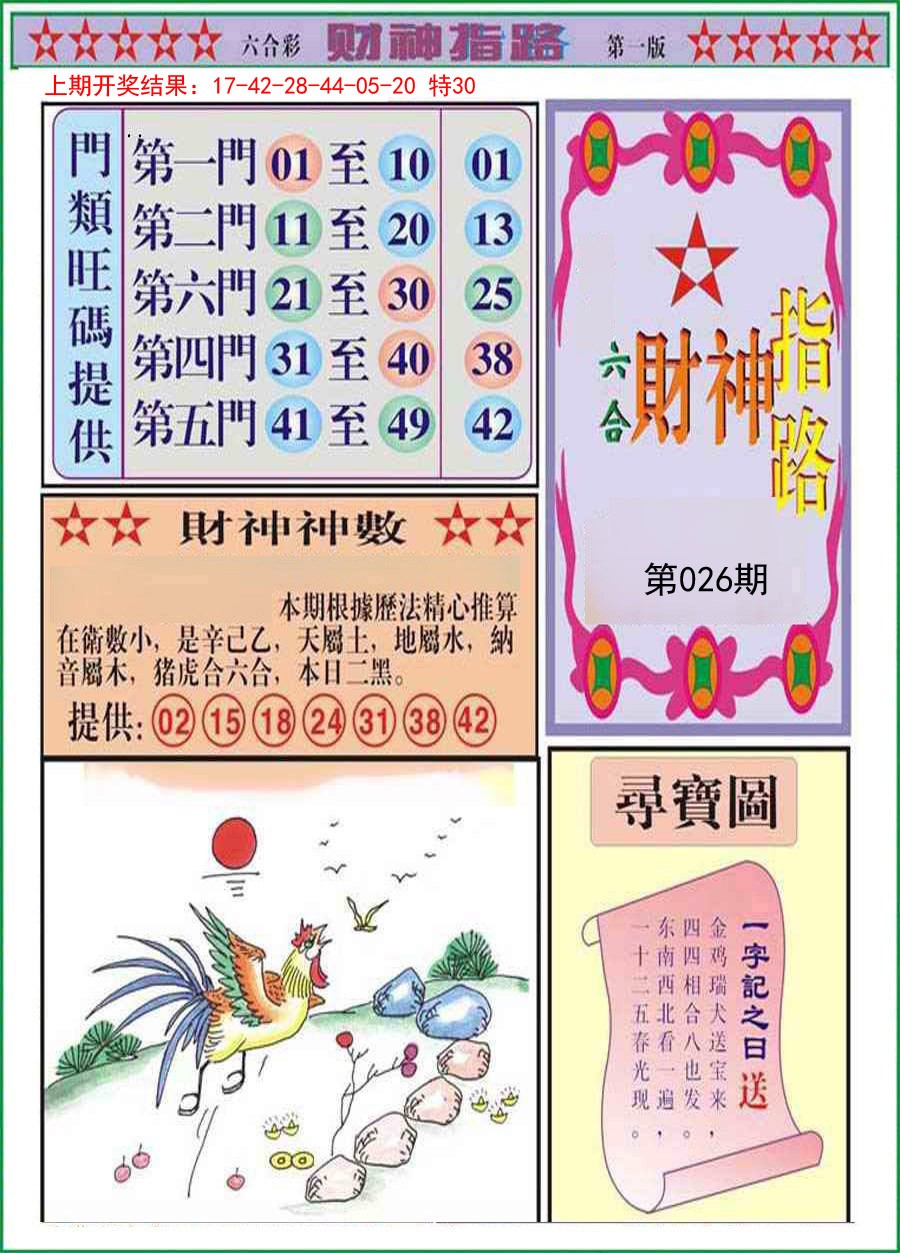 六合彩 财神指路 第一版
上期开奖结果：17-42-28-44-05-20 特30
門類旺碼提供
第一門 01 至 10 01
第二門 11 至 20 13
第六門 21 至 30 25
第四門 31 至 40 38
第五門 41 至 49 42
六合 財神 指路
第026期
財神神數
本期根據歷法精心推算
在衛數小，是辛己乙，天屬土，地屬水，納
音屬木，猪虎合六合，本日二黑。
提供: 02 15 18 24 31 38 42
尋寶圖
一字記之曰 送
金鸡瑞犬送宝来，
四四相合八也发。
东南西北看一遍，
一十二五春光现。